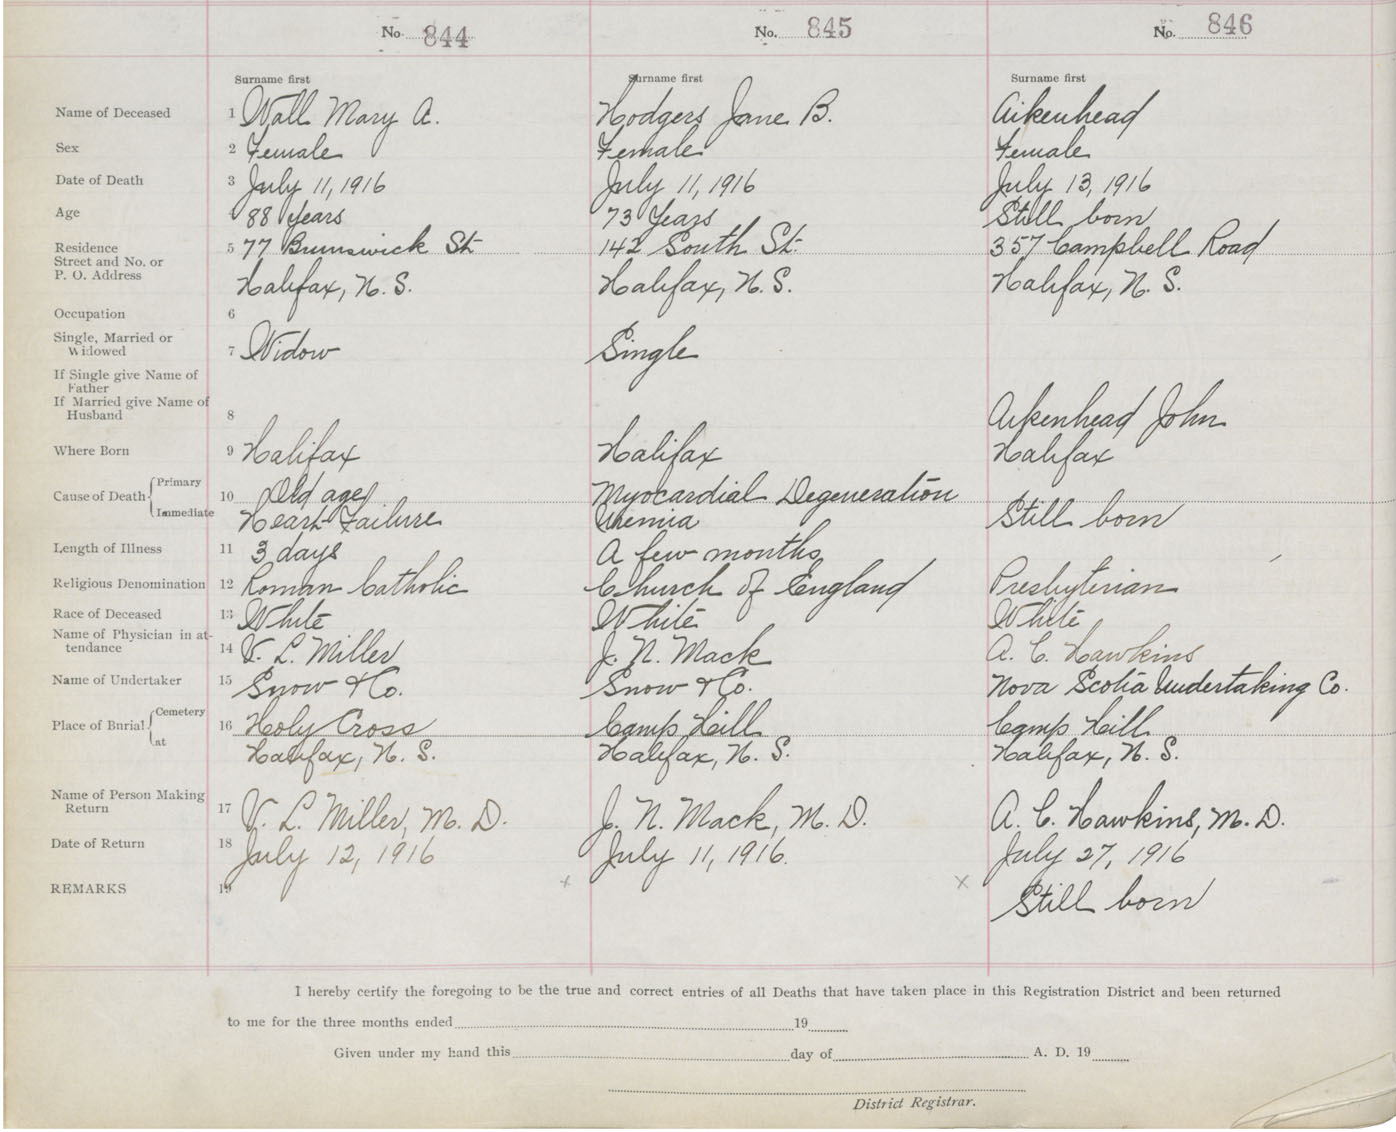 No. 844 No. 845 No. 846
Surname first Surname first Surname first
Name of Deceased 1 Wall Mary A. Hodgers Jane B. Aikenhead
Sex 2 Female Female Female
Date of Death 3 July 11, 1916 July 11, 1916 July 13, 1916
Age 88 Years 73 Years Still born
Residence 5 77 Brunswick St. 142 South St. 357 Campbell Road
Street and No. or
P. O. Address Halifax, N. S. Halifax, N. S. Halifax, N. S.
Occupation 6
Single, Married or
Widowed 7 Widow Single
If Single give Name of
Father
If Married give Name of
Husband 8 Aikenhead John
Where Born 9 Halifax Halifax Halifax
Primary
Cause of Death 10 Old age Myocardial Degeneration
Immediate Heart Failure Uremia Still born
Length of Illness 11 3 days A few months
Religious Denomination 12 Roman Catholic Church of England Presbyterian
Race of Deceased 13 White White White
Name of Physician in at-
tendance 14 V. L. Miller J. N. Mack A. C. Hawkins
Name of Undertaker 15 Snow & Co. Snow & Co. Nova Scotia Undertaking Co.
Cemetery
Place of Burial 16 Holy Cross Camp Hill Camp Hill
at Halifax, N. S. Halifax, N. S. Halifax, N. S.
Name of Person Making
Return 17 V. L. Miller, M. D. J. N. Mack, M. D. A. C. Hawkins, M. D.
Date of Return 18 July 12, 1916 July 11, 1916. July 27, 1916
REMARKS 19 x x Still born
I hereby certify the foregoing to be the true and correct entries of all Deaths that have taken place in this Registration District and been returned
to me for the three months ended 19
Given under my hand this day of A. D. 19
District Registrar.